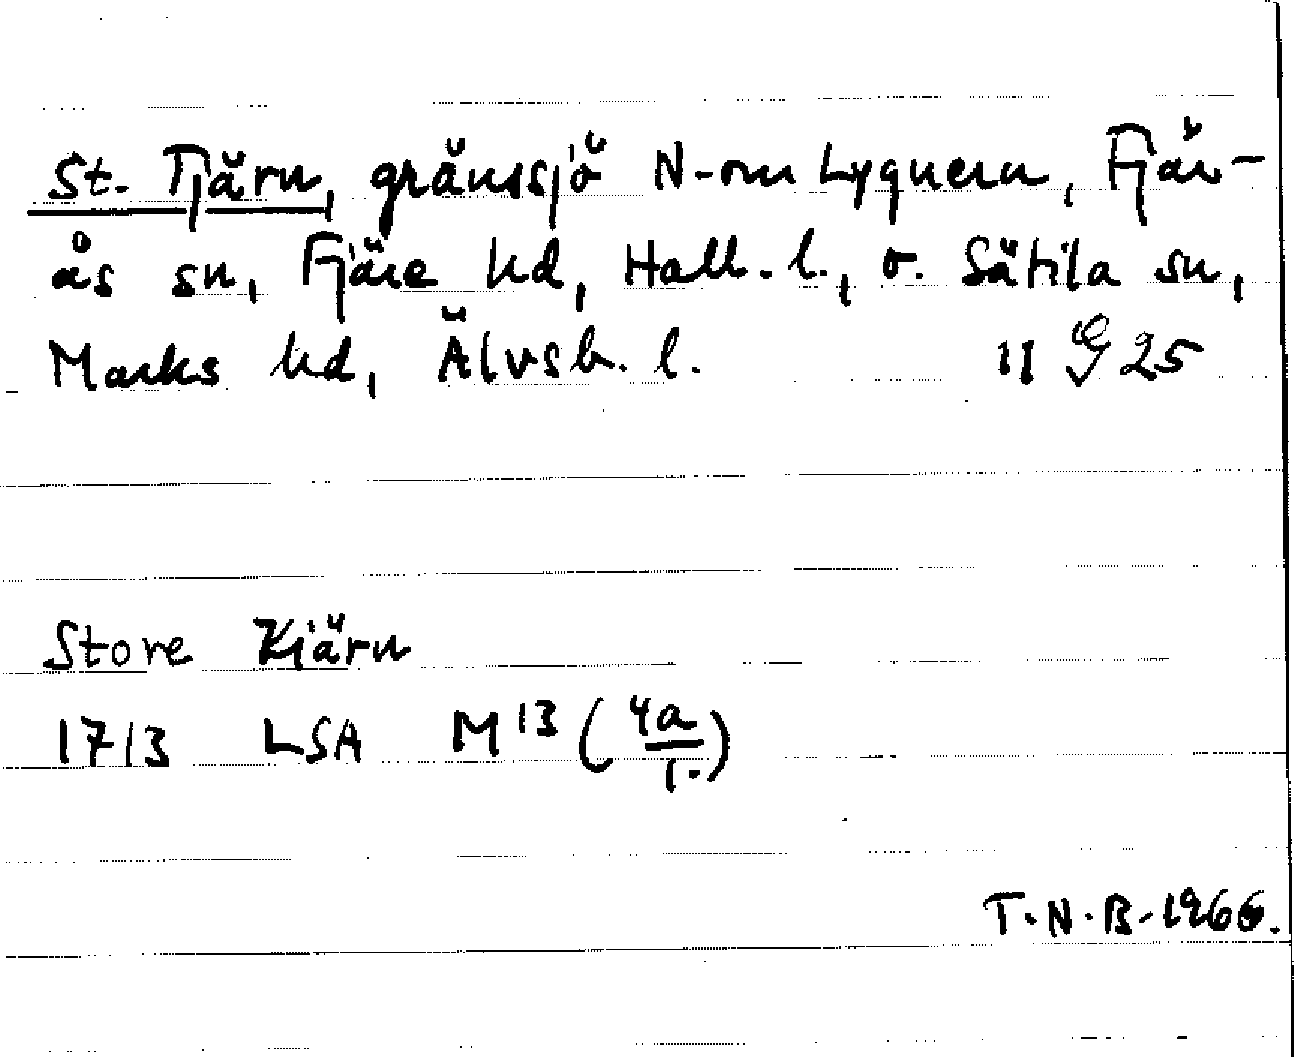 St. Tjärn, gränssjö N-om Lygnern, Fjär-
ås sn, Fjäre hd, Hall. l., o. Sätila sn,
Marks hd, Älvsb. l. 11 G 25
Store Kiärn
1713 LSA M13 (4a/1.)
T.N.B.1966.